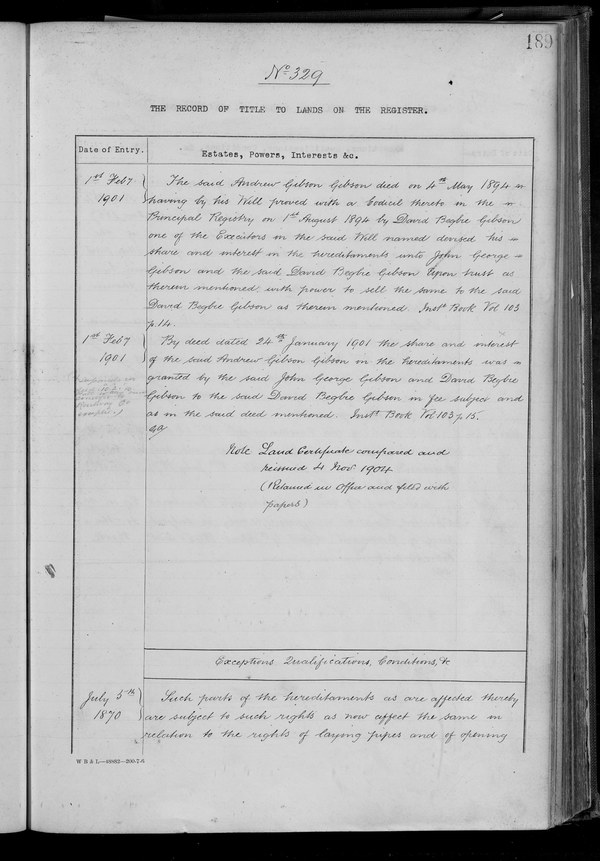 189
No 329
THE RECORD OF TITLE TO LANDS ON THE REGISTER.
Date of Entry.
Estates, Powers, Interests &c.
1st Feby
1901
The said Andrew Gibson Gibson died on 4th May 1894
having by his Will proved with a Codicil thereto in the
Principal Registry on 1st August 1894 by David Begbie Gibson
one of the Executors in the said Will named devised his
share and interest in the hereditaments unto John George
Gibson and the said David Begbie Gibson Upon trust as
therein mentioned with power to sell the same to the said
David Begbie Gibson as therein mentioned. Instt Book Vol 103
p. 14.
1st Feby
1901
By deed dated 24th January 1901 the share and interest
of the said Andrew Gibson Gibson in the hereditaments was
granted by the said John George Gibson and David Begbie
Gibson to the said David Begbie Gibson in fee subject and
as in the said deed mentioned. Instt Book Vol 103 p. 15.
Note Land Certificate compared and
reissued 4 Nov. 1904
(Retained in Office and filed with
papers)
Exceptions Qualifications, Conditions, &c
July 5th
1870
Such parts of the hereditaments as are affected thereby
are subject to such rights as now affect the same in
relation to the rights of laying pipes and of opening
W B & L